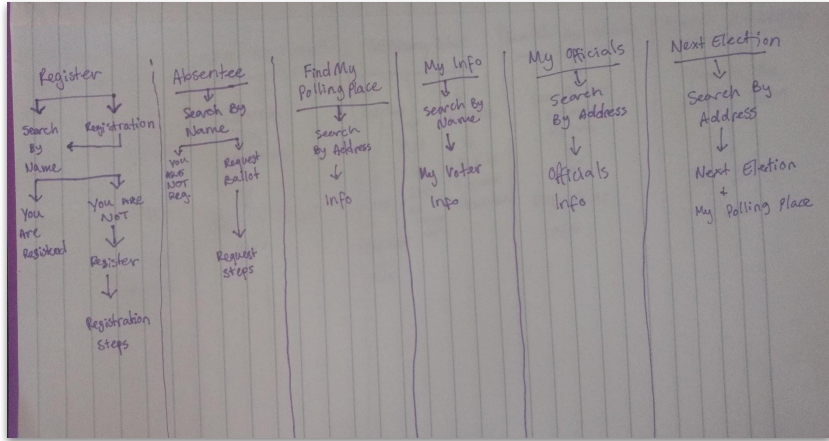 Register
Search
By
Name
Registration
You
Are
Registered
You ARE
NOT
Register
Registration
Steps
Absentee
Search By
Name
You
ARE
NOT
Reg
Request
Ballot
Request
Steps
Find My
Polling Place
Search
By Address
Info
My Info
Search By
Name
My Voter
Info
My Officials
Search
By Address
Officials
Info
Next Election
Search By
Address
Next Election
+
My Polling Place